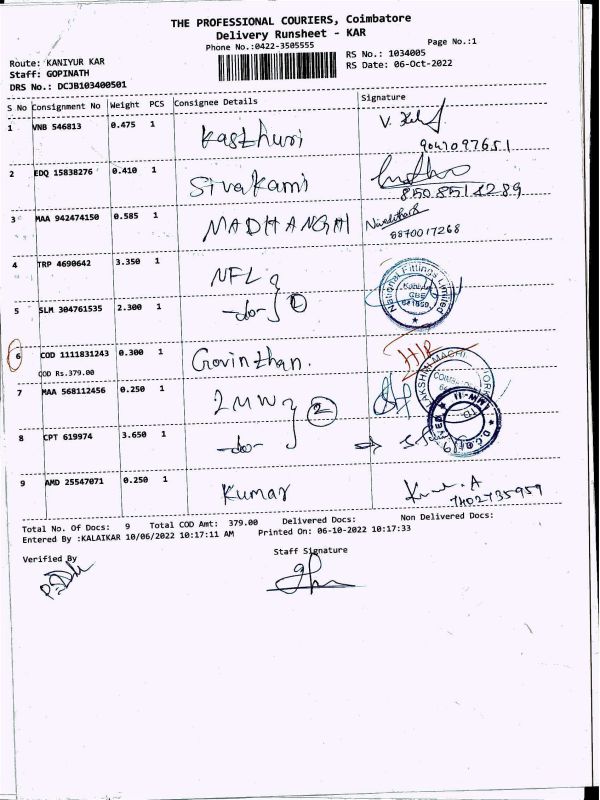 THE PROFESSIONAL COURIERS, Coimbatore
Delivery Runsheet - KAR
Phone No.:0422-3505555
Page No.:1
Route: KANIYUR KAR
Staff: GOPINATH
DRS No.: DCJB103400501
RS No.: 1034005
RS Date: 06-Oct-2022
S No Consignment No Weight PCS Consignee Details Signature
1 VNB 546813 0.475 1 Kasthuri
9047097651
2 EDQ 15838276 0.410 1 Sivakami
8508514289
3 MAA 942474150 0.585 1 MADHANGHI
8870017268
4 TRP 4690642 3.350 1 NFL
National Fittings Limited
5 SLM 304761535 2.300 1 -do- 2
6 COD 1111831243 0.300 1 Govinthan.
COD Rs.379.00
7 MAA 568112456 0.250 1 LMW 2
LMW-II
8 CPT 619974 3.650 1 -do-
9 AMD 25547071 0.250 1 Kumar Kumar.A
7402735959
Total No. Of Docs: 9 Total COD Amt: 379.00 Delivered Docs: Non Delivered Docs:
Entered By :KALAIKAR 10/06/2022 10:17:11 AM Printed On: 06-10-2022 10:17:33
Verified By
Staff Signature